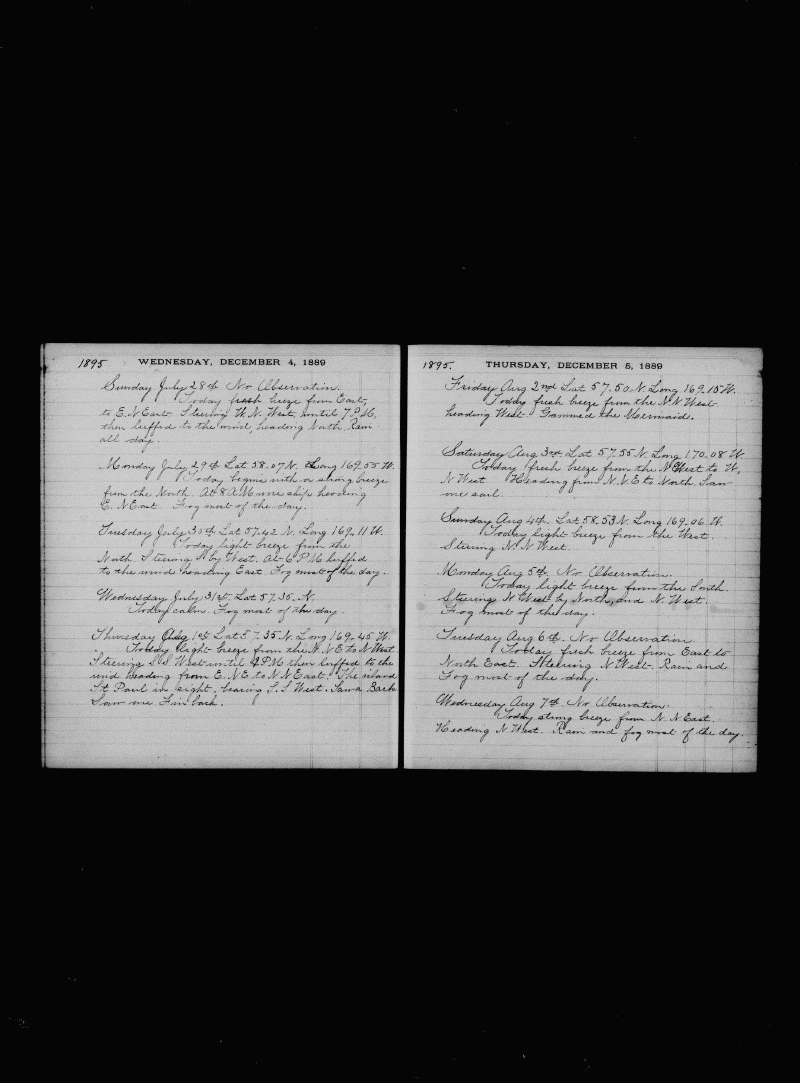 1895 WEDNESDAY, DECEMBER 4, 1889
Sunday July 28th No Observation.
Today fresh breeze from East,
to E. N East. Steering W. N. West, until 7 P.M,
then luffed to the wind, heading North. Rain
all day.
Monday July 29th Lat 58.07 N. Long 169.55 W.
Today begins with a strong breeze
from the North. At 8 A M wore ship heading
E. N East. Fog most of the day.
Tuesday July 30th Lat 57.42 N. Long 169.11 W.
Today light breeze from the
North. Steering N by West. At 6 P M luffed
to the wind heading East Fog most of the day.
Wednesday July 31st. Lat 57.35 N.
Today calm. Fog most of the day.
Thursday Aug 1st Lat 57.35 N. Long 169.45 W.
Today light breeze from the N. N E to N West.
Steering S S West until 4 P M then luffed to the
wind heading from E. N E to N N East. The island
St Paul in sight, bearing S. S West. Saw a Bark
Saw one Finback.
1895. THURSDAY, DECEMBER 5, 1889
Friday Aug 2nd Lat 57.50 N. Long 169.15 W.
Today fresh breeze from the N. N West
heading West. Gammed the Mermaid.
Saturday Aug 3rd. Lat 57.55 N. Long 170.08 W.
Today fresh breeze from the N West to W,
N West Heading from N. N. E to North. Saw
one sail.
Sunday Aug 4th. Lat 58.53 N. Long 169.06 W.
Today light breeze from the West.
Steering N. N West.
Monday Aug 5th. No Observation.
Today light breeze from the South.
Steering N West by North, and N. West.
Fog most of the day.
Tuesday Aug 6th. No Observation
Today fresh breeze from East to
North East. Steering N West. Rain and
Fog most of the day.
Wednesday Aug 7th. No Observation.
Today strong breeze from N. N East.
Heading N West. Rain and fog most of the day.